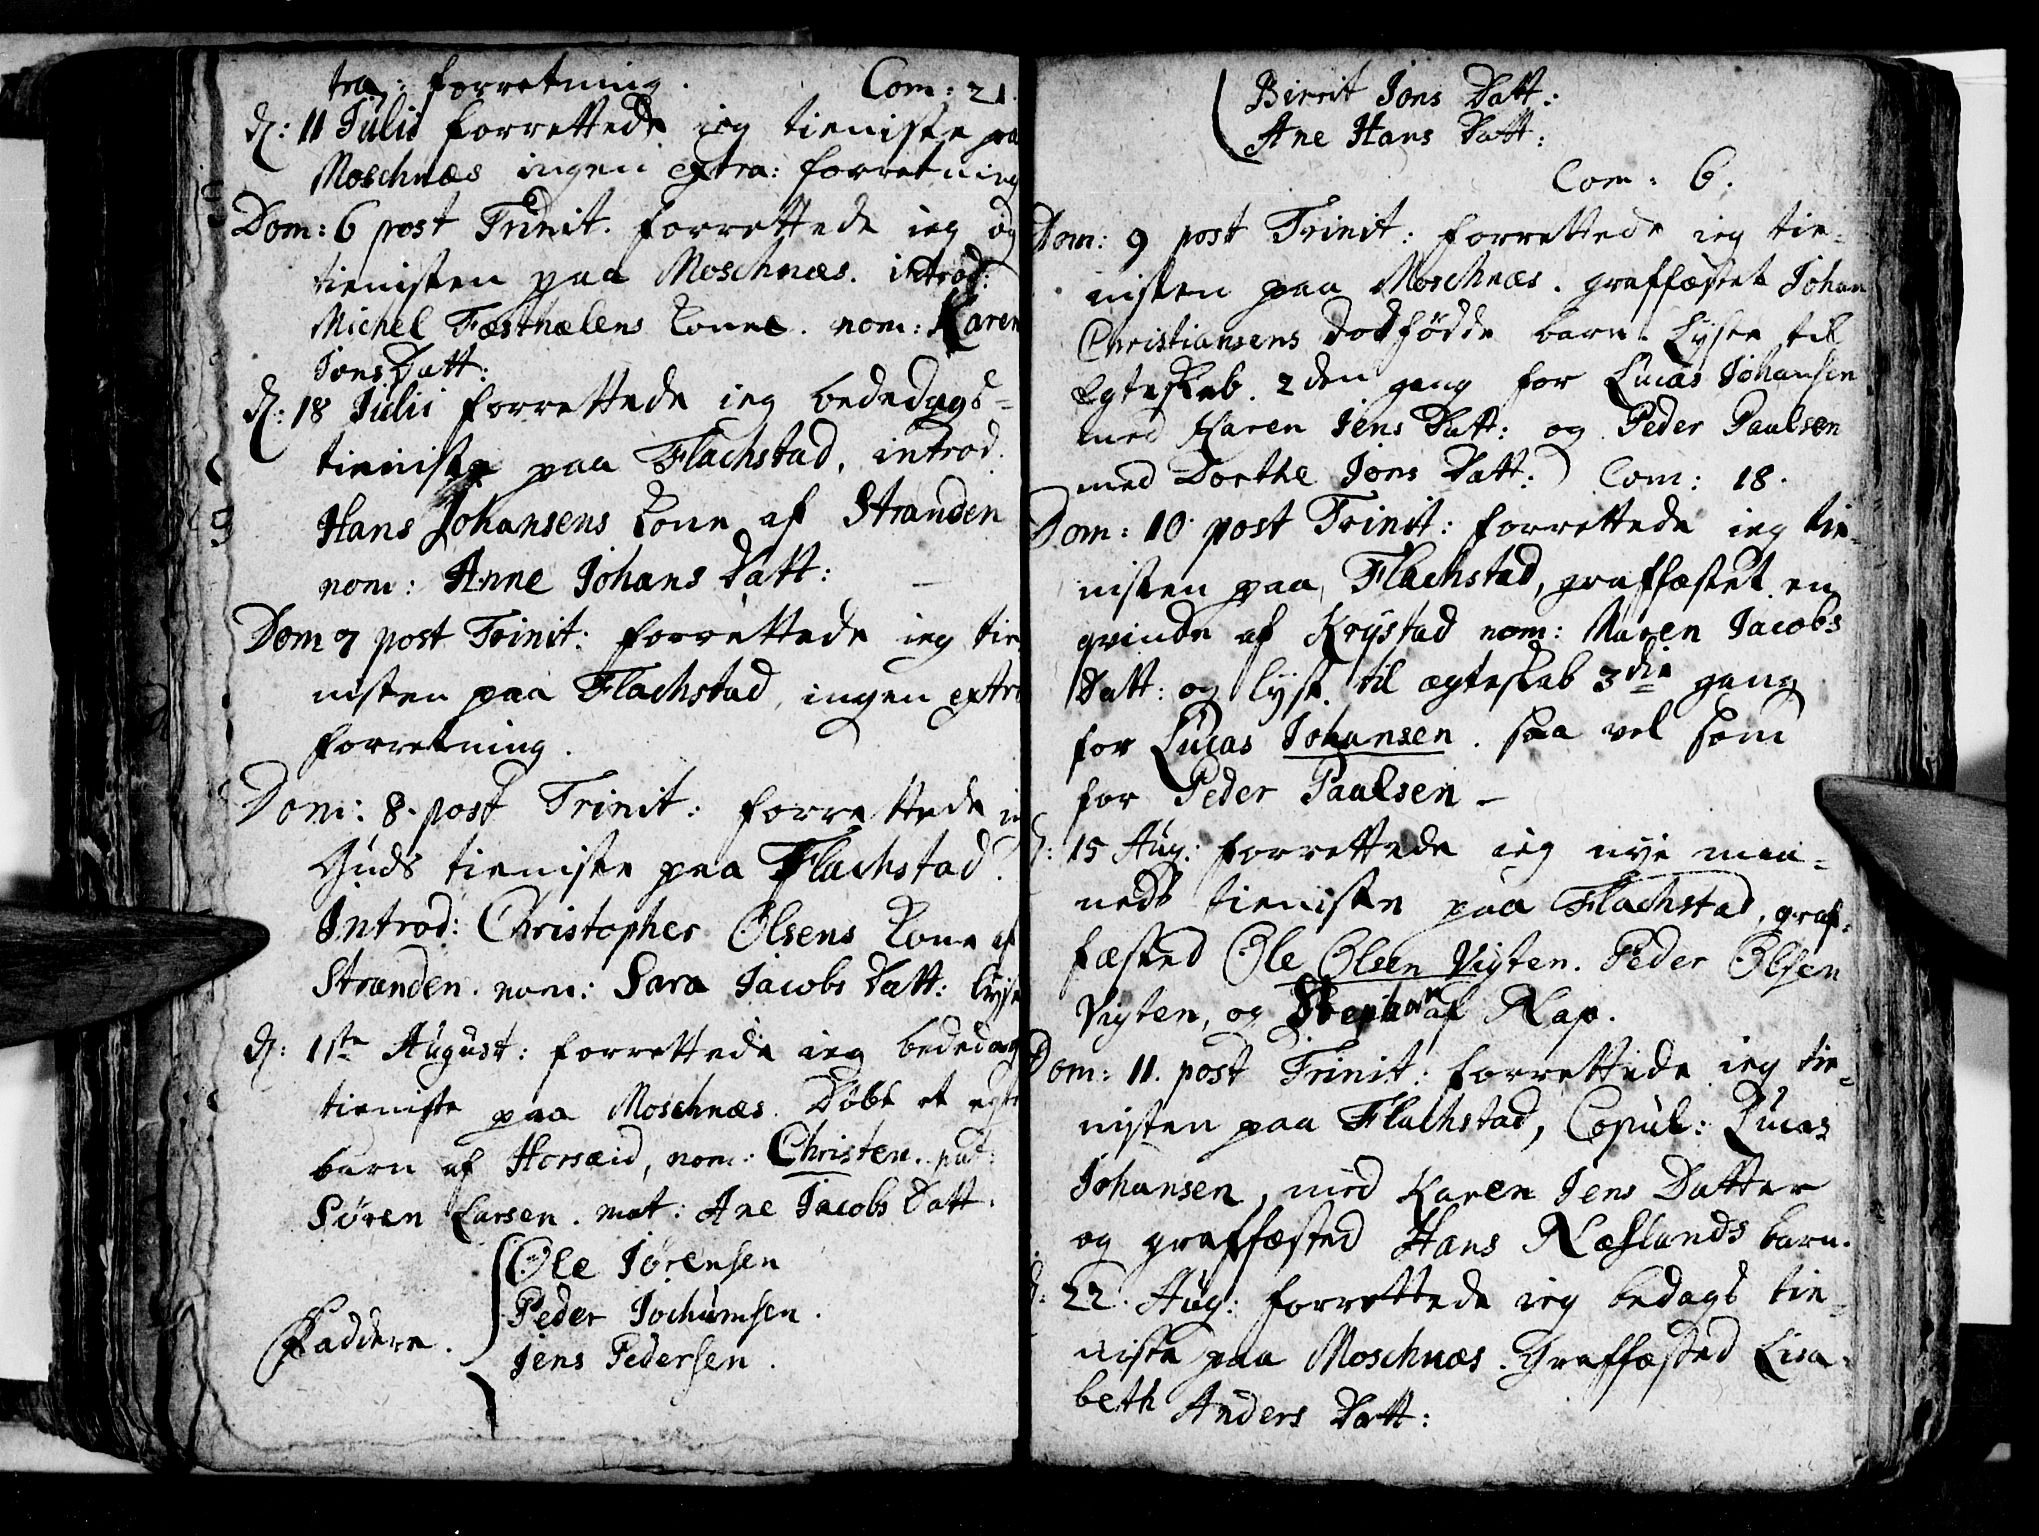 tra: forretning. Com: 21.
d: 11 Julii forrettede ieg tieniste paa
Moschnæs ingen extra: forretning
Dom: 6 post Trinit. forrettede ieg
tienisten paa Moschnæs. introd:
Michel Fæsthælens Kone. nom: Karen
Jons Datt:
d: 18 Julii forrettede ieg bededags-
tieniste paa Flachstad, introd.
Hans Johansens Kone af Stranden
nom: Anne Johans Datt:
Dom 7 post Trinit: forrettede ieg tie
nisten paa Flachstad, ingen extra
forretning.
Dom: 8. post Trinit: forrettede ie
Guds tieniste paa Flachstad.
Introd: Christopher Olsens Kone af
Stranden. nom: Sara Jacobs Datt: lyste
d: 1ste August: forrettede ieg bededags
tieniste paa Moschnæs. Døbt et egte
barn af Horsæid, nom: Christen. pat:
Søren Larsen. mat: Ane Jacobs Datt.
Faddere.
Ole Jørensen
Peder Jochumsen.
Jens Pedersen.
Birrit Jons Datt:
Ane Hans Datt:
Com: 6.
Dom: 9 post Trinit: forrettede ieg tie-
nisten paa Moschnæs. graffæstet Johan
Christiansens dødfødde barn. Lyste til
Egteskab. 2den gang for Lucas Johansen
med Karen Jens Datt: og Peder Paulsen
med Dorthe Jons Datt: Com: 18.
Dom: 10 post Trinit: forrettede ieg tie-
nisten paa Flachstad, graffæstet en
qvinde af Krystad nom: Maren Jacobs
Datt: og lyst til ægteskab 3die gang
for Lucas Johansen. saa vel som
for Peder Paulsen -
d: 15 Aug: forrettede ieg nye maa-
neds tieniste paa Flachstad, graf-
fæsted Ole Olsen Vigten. Peder Olsen
Vigten, og af Nap.
Dom: 11. post Trinit: forrettede ieg tie-
nisten paa Flachstad, Copul: Lucas
Johansen, med Karen Jens Datter
og graffæsted Hans Næslands barn.
d: 22. Aug: forrettede ieg bedags tie-
niste paa Moschnæs. Graffæsted Lisa-
beth Anders Datt: